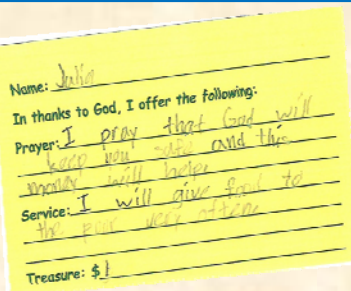 Name: Julia
In thanks to God, I offer the following:
Prayer: I pray that God will
keep you safe and this
money will helpe
Service: I will give food to
the poor very oftene
Treasure: $1